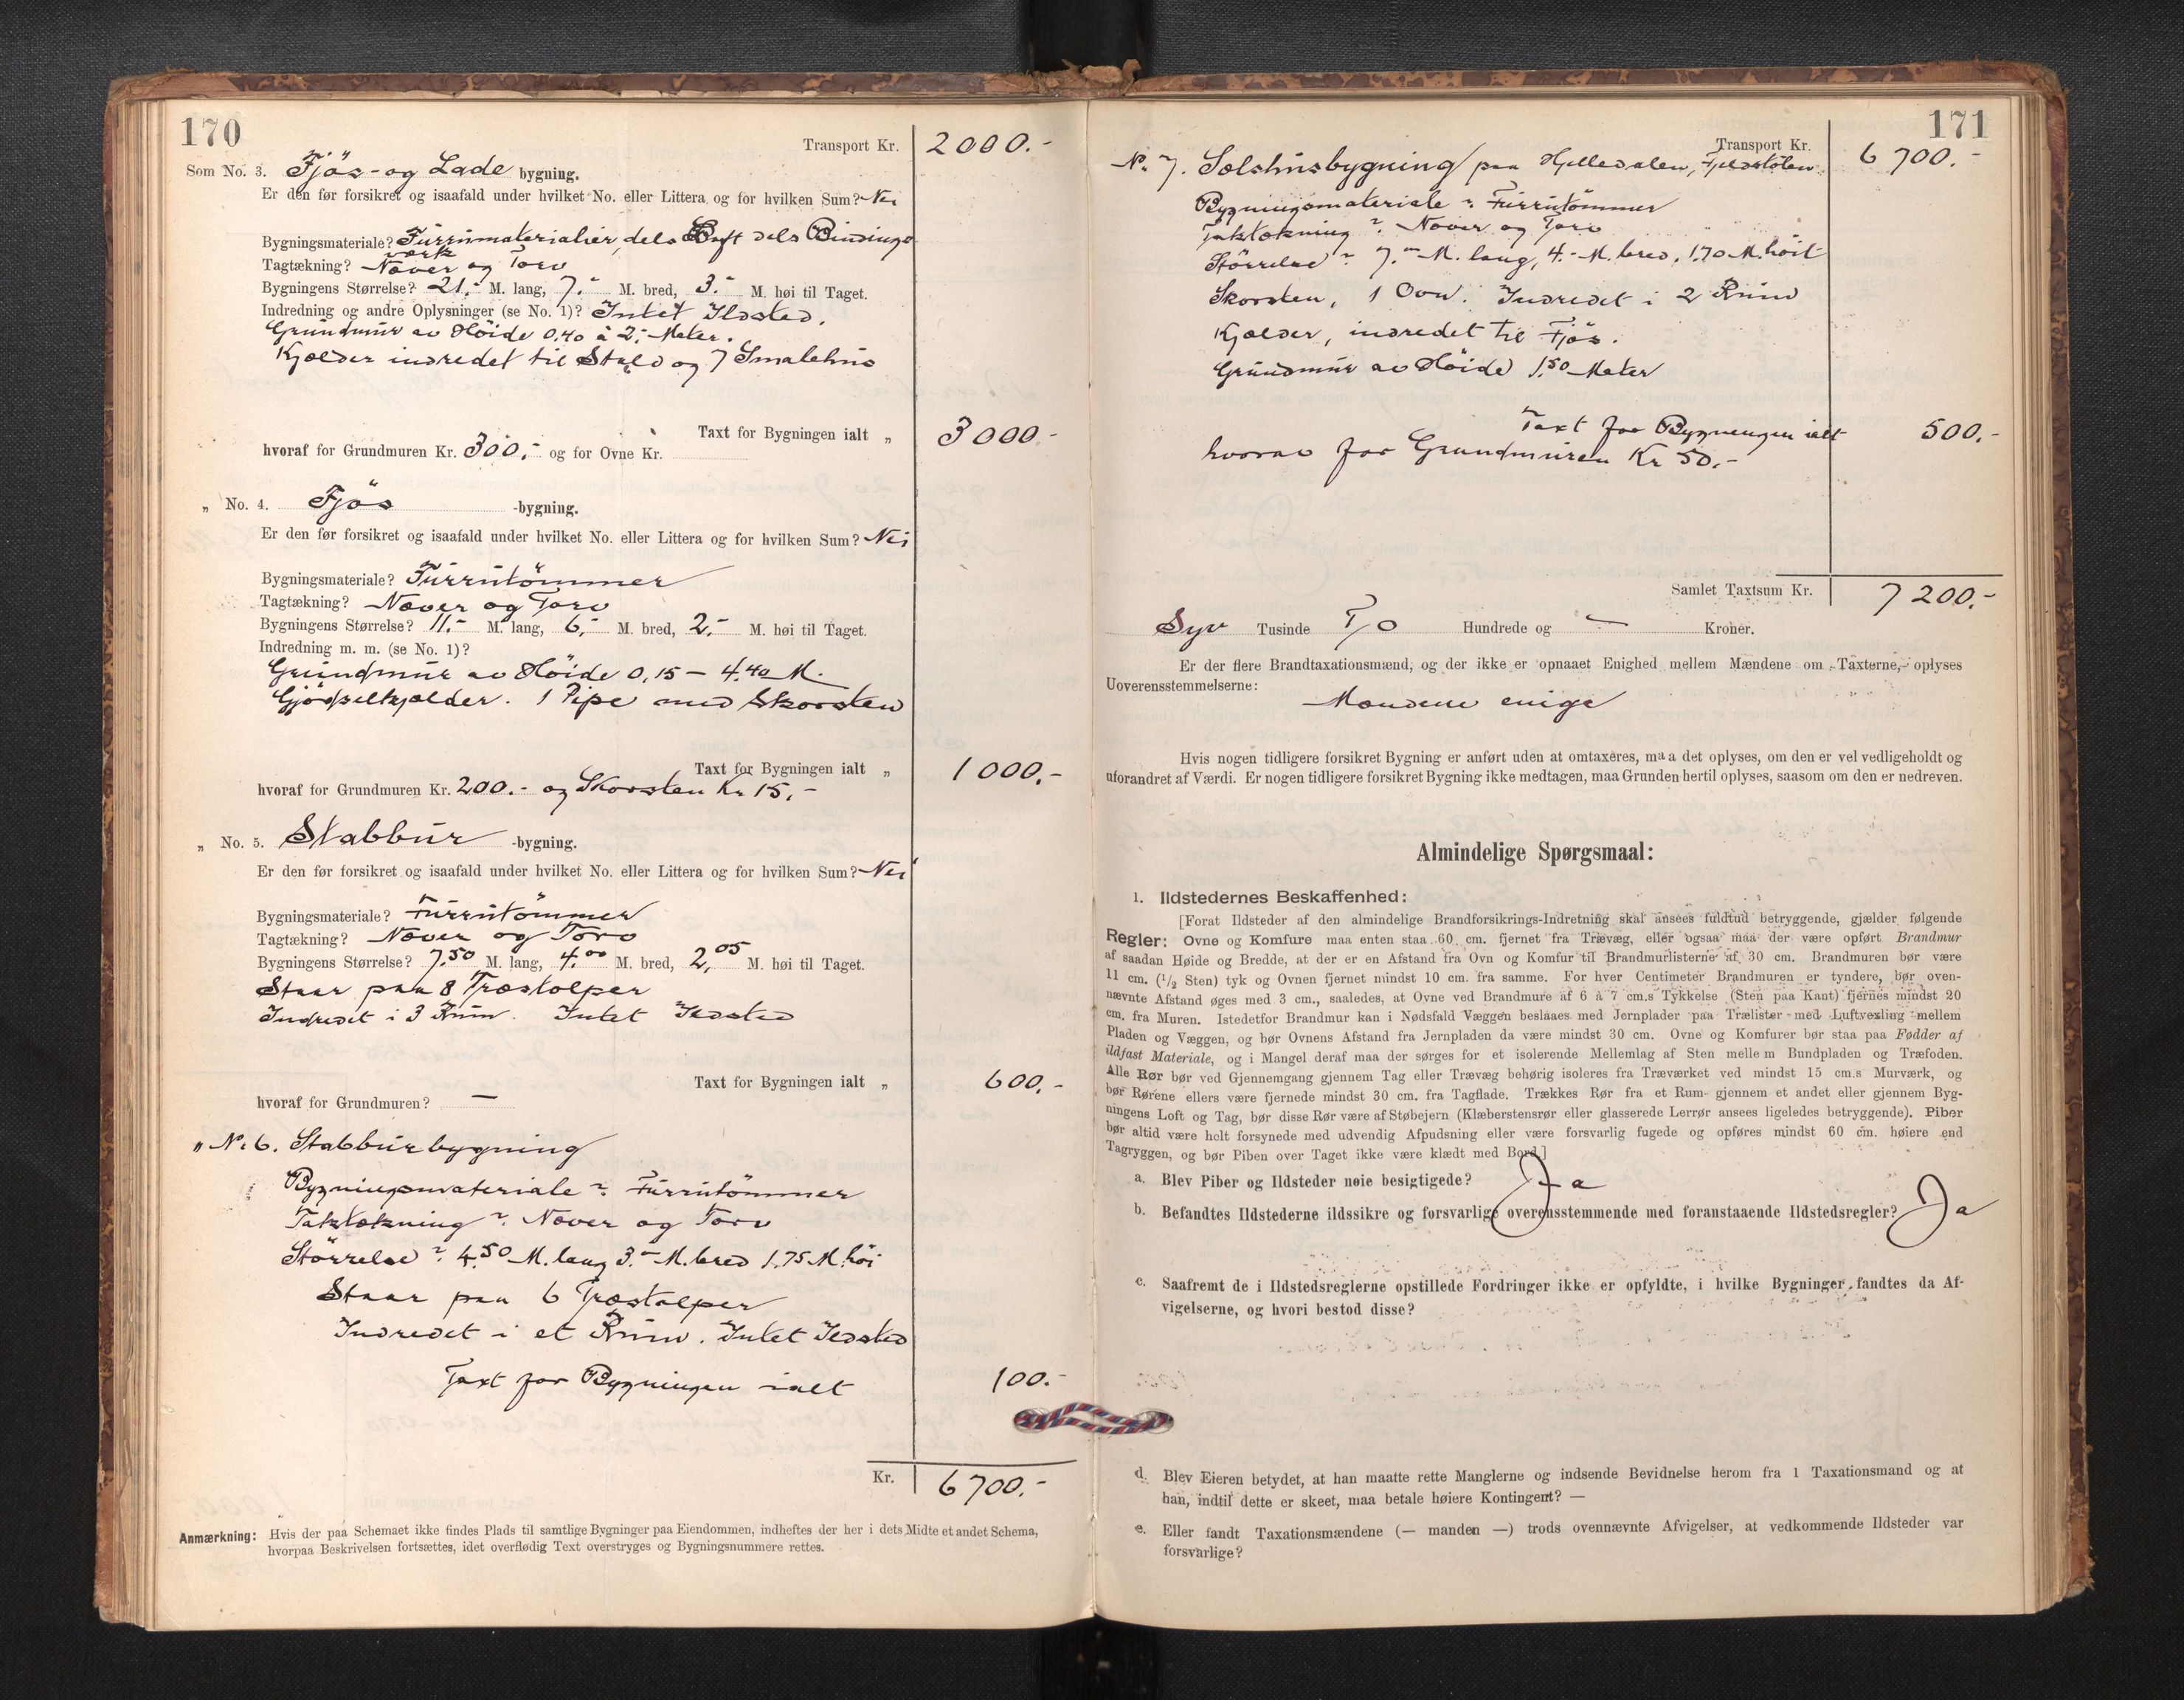 170
Transport Kr. 2000.-
Som No. 3. Fjös- og Lade bygning.
Er den før forsikret og isaafald under hvilket No. eller Littera og for hvilken Sum? Nei
Bygningsmateriale? Furrumaterialier, dels Loft dels Bindings
værk
Tagtækning? Næver og Torv
Bygningens Størrelse? 21.- M. lang, 7.- M. bred, 3.- M. høi til Taget.
Indredning og andre Oplysninger (se No. 1)? Intet Ildsted.
Grundmur av Höide 0,40 à 2.- Meter.
Kjælder indredet til Stald og 7 Smalehus
Taxt for Bygningen ialt „ 3000.-
hvoraf for Grundmuren Kr. 300.- og for Ovne Kr.
„ No. 4. Fjös -bygning.
Er den før forsikret og isaafald under hvilket No. eller Littera og for hvilken Sum? Nei
Bygningsmateriale? Furrutömmer
Tagtækning? Næver og Torv
Bygningens Størrelse? 11.- M. lang, 6.- M. bred, 2.- M. høi til Taget.
Indredning m. m. (se No. 1)?
Grundmur av Höide 0,15 - 4,40 M.
Gjödselkjælder. 1 Pipe med Skorsten
Taxt for Bygningen ialt „ 1000.-
hvoraf for Grundmuren Kr. 200.- og Skorsten Kr 15.-
„ No. 5. Stabbur -bygning.
Er den før forsikret og isaafald under hvilket No. eller Littera og for hvilken Sum? Nei
Bygningsmateriale? Furrutömmer
Tagtækning? Næver og Torv
Bygningens Størrelse? 7,50 M. lang, 4,00 M. bred, 2,05 M. høi til Taget.
Staar paa 8 Træstolper
Indredet i 3 Rum. Intet Ildsted
Taxt for Bygningen ialt „ 600.-
hvoraf for Grundmuren? —
„ No. 6. Stabburbygning
Bygningsmateriale? Furrutömmer
Taktækning? Næver og Torv
Störrelse? 4,50 M. lang 3.- M. bred 1,75 M. höi
Staar paa 6 Træstolper
Indredet i et Rum. Intet Ildsted
Taxt for Bygningen ialt 100.-
Kr. 6700.-
Anmærkning: Hvis der paa Schemaet ikke findes Plads til samtlige Bygninger paa Eiendommen, indheftes der her i dets Midte et andet Schema,
hvorpaa Beskrivelsen fortsættes, idet overflødig Text overstryges og Bygningsnummere rettes.
171
Transport Kr. 6700.-
No. 7. Sælshusbygning paa Hjelledalen, Fjeldstölen
Bygningsmateriale? Furrutömmer
Taktækning? Næver og Torv
Störrelse? 7.- M. lang, 4.- M. bred, 1.70 M. höit
Skorsten, 1 Ovn. Indredet i 2 Rum
Kjælder, indredet til Fjös.
Grundmur av Höide 1,50 Meter
Taxt for Bygningen ialt 500.-
hvorav for Grundmuren Kr 50.-
Samlet Taxtsum Kr. 7200.-
Syv Tusinde To Hundrede og — Kroner.
Er der flere Brandtaxationsmænd, og der ikke er opnaaet Enighed mellem Mændene om Taxterne, oplyses
Uoverensstemmelserne:
Mændene enige
Hvis nogen tidligere forsikret Bygning er anført uden at omtaxeres, maa det oplyses, om den er vel vedligeholdt og
uforandret af Værdi. Er nogen tidligere forsikret Bygning ikke medtagen, maa Grunden hertil oplyses, saasom om den er nedreven.
Almindelige Spørgsmaal:
1. Ildstedernes Beskaffenhed:
[Forat Ildsteder af den almindelige Brandforsikrings-Indretning skal ansees fuldtud betryggende, gjælder følgende
Regler: Ovne og Komfure maa enten staa 60 cm. fjernet fra Trævæg, eller ogsaa maa der være opført Brandmur
af saadan Høide og Bredde, at der er en Afstand fra Ovn og Komfur til Brandmurlisterne af 30 cm. Brandmuren bør være
11 cm. (1/2 Sten) tyk og Ovnen fjernet mindst 10 cm. fra samme. For hver Centimeter Brandmuren er tyndere, bør oven-
nævnte Afstand øges med 3 cm., saaledes, at Ovne ved Brandmure af 6 à 7 cm.s Tykkelse (Sten paa Kant) fjernes mindst 20
cm. fra Muren. Istedetfor Brandmur kan i Nødsfald Væggen beslaaes med Jernplader paa Trælister med Luftvexling mellem
Pladen og Væggen, og bør Ovnens Afstand fra Jernpladen da være mindst 30 cm. Ovne og Komfurer bør staa paa Fødder af
ildfast Materiale, og i Mangel deraf maa der sørges for et isolerende Mellemlag af Sten mellem Bundpladen og Træfoden.
Alle Rør bør ved Gjennemgang gjennem Tag eller Trævæg behørig isoleres fra Træværket ved mindst 15 cm.s Murværk, og
bør Rørene ellers være fjernede mindst 30 cm. fra Tagflade. Trækkes Rør fra et Rum gjennem et andet eller gjennem Byg-
ningens Loft og Tag, bør disse Rør være af Støbejern (Klæberstensrør eller glasserede Lerrør ansees ligeledes betryggende). Piber
bør altid være helt forsynede med udvendig Afpudsning eller være forsvarlig fugede og opføres mindst 60 cm. høiere end
Tagryggen, og bør Piben over Taget ikke være klædt med Bord.]
a. Blev Piber og Ildsteder nøie besigtigede? Ja
b. Befandtes Ildstederne ildssikre og forsvarlige overensstemmende med foranstaaende Ildstedsregler? Ja
c. Saafremt de i Ildstedsreglerne opstillede Fordringer ikke er opfyldte, i hvilke Bygninger fandtes da Af-
vigelserne, og hvori bestod disse?
d. Blev Eieren betydet, at han maatte rette Manglerne og indsende Bevidnelse herom fra 1 Taxationsmand og at
han, indtil dette er skeet, maa betale høiere Kontingent? —
e. Eller fandt Taxationsmændene (— manden —) trods ovennævnte Afvigelser, at vedkommende Ildsteder var
forsvarlige?